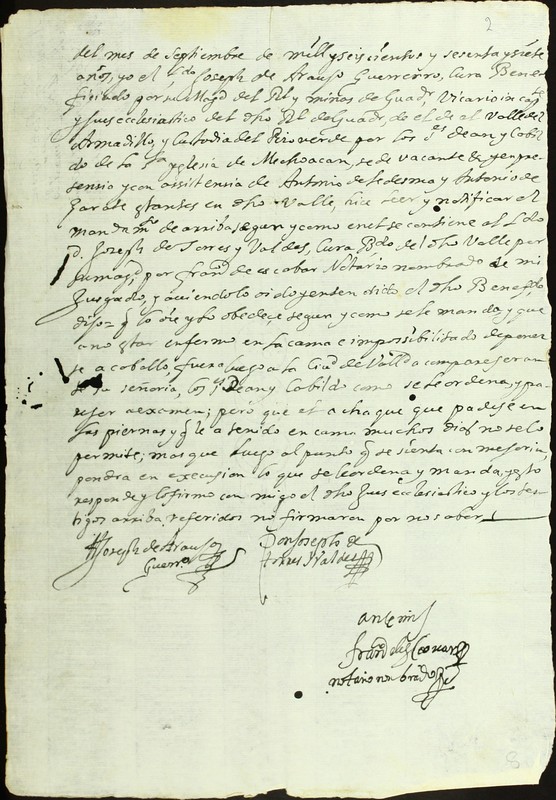 2
del mes de septiembre de mill y seiscientos y sesenta y siete
años, yo el Ldo Joseph de Arauso Guerrero, Cura Bene
ficiado por su Magd del Rl y minas de Guadr, Vicario in cap
y Jues ecclesiastico del dho Rl de Guadr, do el de el Valle del
Armadillo, y Custodia del Rio verde por los Ss dean y Cabil
do de la Sta yglesia de Mechoacan, sede vacante &c en pre
sensia y con assistensia de Antonio de Ledesma y Antonio de
Zarate estantes en dho Valle, hice leer y notificar el
mandamto de arriba segun y como en el se contiene al Ldo
D. Joseph de Torres y Valdes, Cura Bdo de el dho Valle por
su magd, por Franco de escobar Notario nombrado de mi
Jusgado, y aviendolo oido y entendido el dho Benefdo
dijo= q lo oie y lo obedece segun y como se le manda, y que
a no estar enfermo en la cama e impossibilitado de poner
se a caballo, fuera luego a la Ciud de Valld a comparecer an
te su señoria, los Ss Dean y Cabildo como se le ordena, y pa
reser a examen; pero que el achaque que padese en
las piernas y q le a tenido en cama muchos dias no se lo
permite; mas que luego al punto q se sienta con mejoria,
pondra en execusion lo que se le ordena y manda, y esto
responde y lo firmo con migo el dho Jues ecclesiastico y los tes
tigos arriba referidos no firmaron por no saber
Joseph de Arauso
Guerrero
Don Joseph de
torres y Valdes
ante mi
Franco de Escovar
notario nonbrado
8